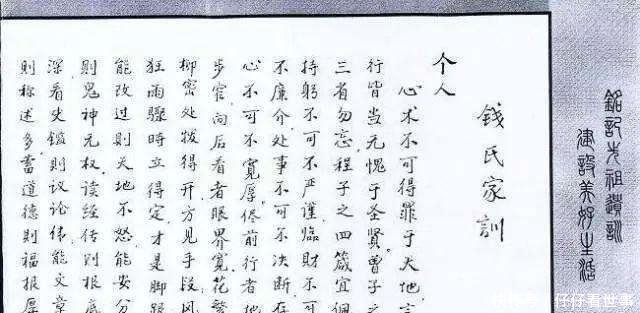 銘記先祖遺訓
建設美好生活
钱氏家训
个人
心术不可得罪于天地,言
行皆当无愧于圣贤曾子之
三省勿忘,程子之四箴宜佩
持躬不可不严谨,临财不可
不廉介处事不可不决断存
心不可不宽厚。前行者地
步窄,向后看者眼界宽。花繁
柳密处拨得开,方见手段风
狂雨骤时立得定,才是脚跟
能改过则天地不怒,能安分
則鬼神无权。读经传则根底
深看史鑑則议论伟能文章
則称述多蓄道德則福报厚
仔仔看世事